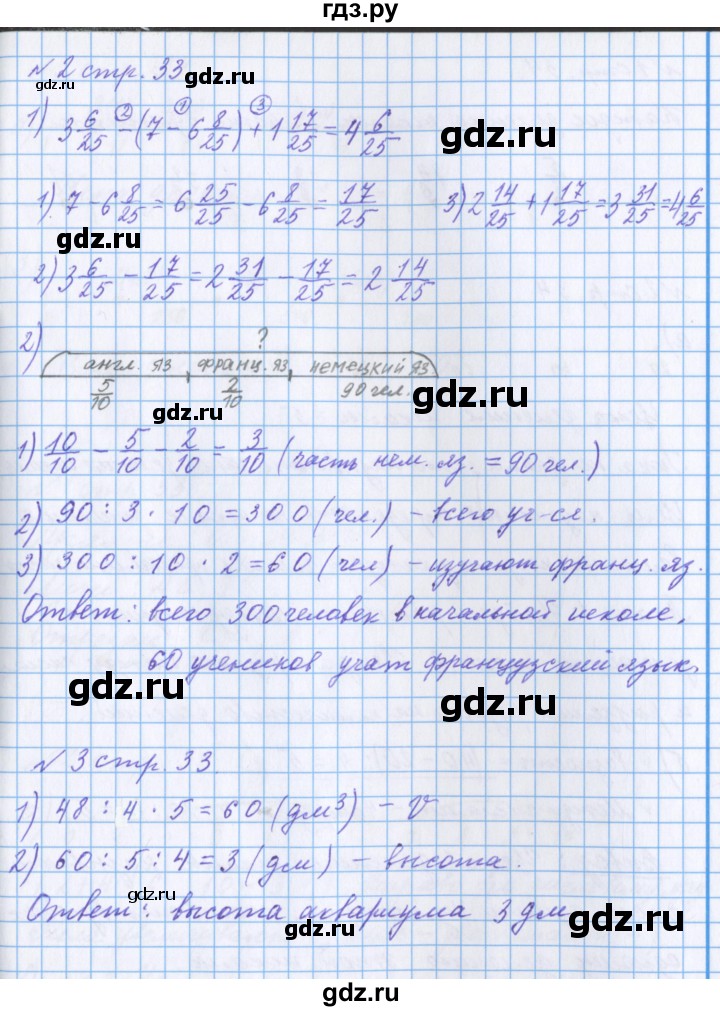 гдз.ру
№2 стр. 33
gdz.ru
gdz.ru
1) 3 6/25 - (7 - 6 8/25) + 1 17/25 = 4 6/25
② ① ③
gdz.ru
gdz.ru
1) 7 - 6 8/25 = 6 25/25 - 6 8/25 = 17/25
3) 2 14/25 + 1 17/25 = 3 31/25 = 4 6/25
gdz.ru
2) 3 6/25 - 17/25 = 2 31/25 - 17/25 = 2 14/25
gdz.ru
2) ?
англ. яз франц. яз, немецкий яз
5/10 2/10 90 чел.
gdz.ru
gdz.ru
1) 10/10 - 5/10 - 2/10 = 3/10 (часть нем. яз. = 90 чел.)
2) 90 : 3 · 10 = 300 (чел.) - всего уч-ся.
gdz.ru
gdz.ru
3) 300 : 10 · 2 = 60 (чел) - изучают франц. яз.
Ответ: всего 300 человек в начальной школе,
gdz.ru
60 учеников учат французский язык.
gdz.ru
gdz.ru
№3 стр. 33
gdz.ru
1) 48 : 4 · 5 = 60 (дм³) - V
gdz.ru
2) 60 : 5 : 4 = 3 (дм) - высота.
gdz.ru
Ответ: высота аквариума 3 дм
gdz.ru
gdz.ru
gdz.ru